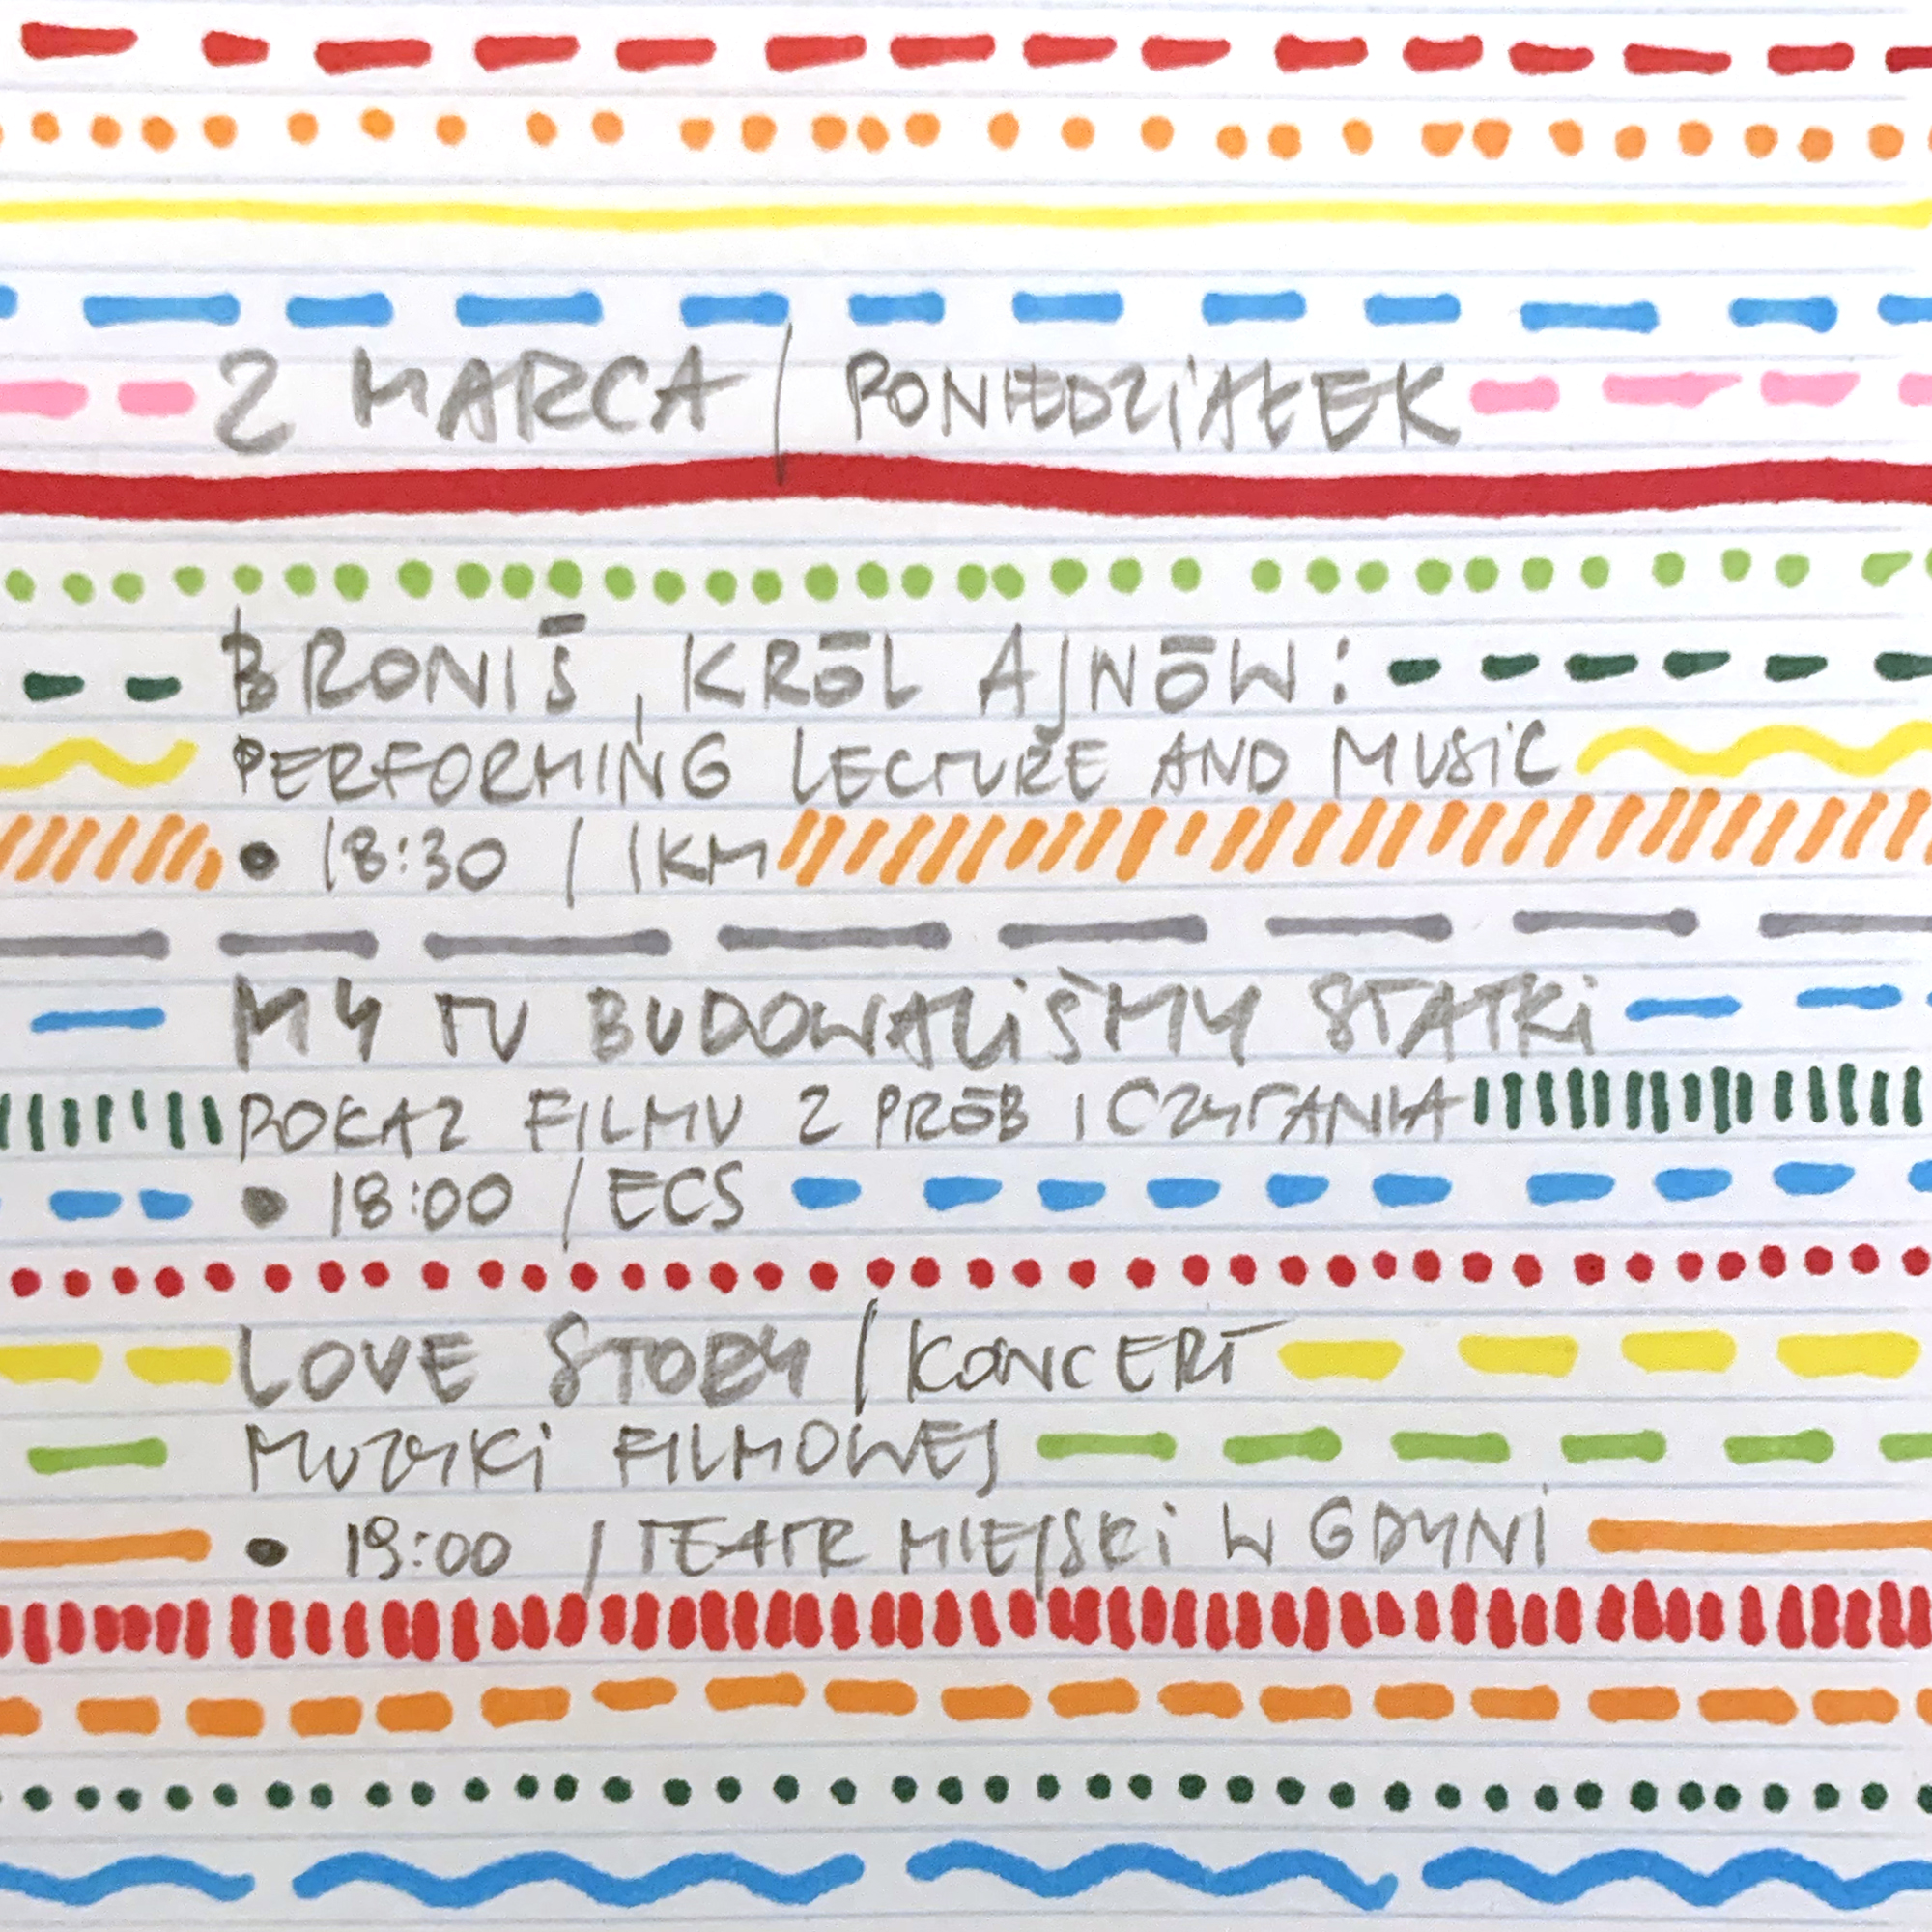 2 MARCA / PONIEDZIAŁEK
BRONIŚ, KRÓL AJNÓW:
PERFORMING LECTURE AND MUSIC
• 18:30 / IKM
MY TU BUDOWALIŚMY STATKI
POKAZ FILMU Z PRÓB I CZYTANIA
• 18:00 / ECS
LOVE STORY / KONCERT
MUZYKI FILMOWEJ
• 19:00 / TEATR MIEJSKI W GDYNI